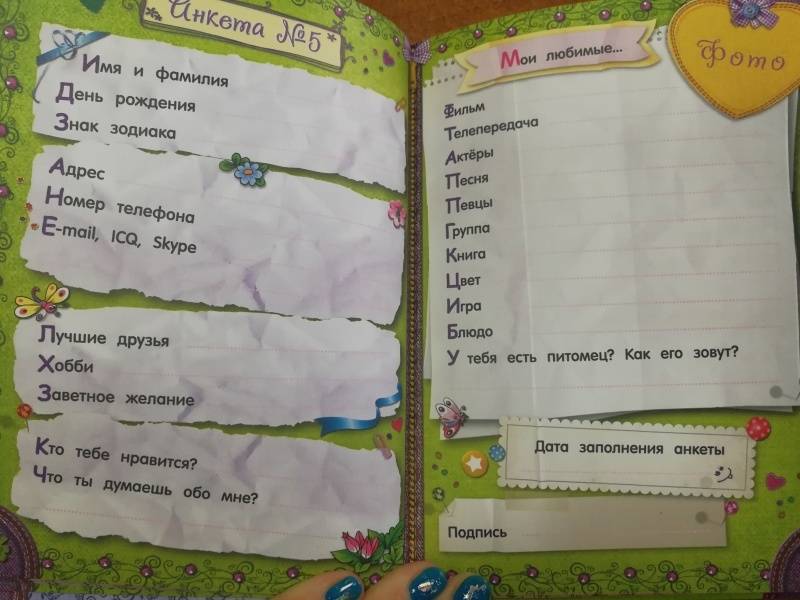 Анкета №5
Имя и фамилия
День рождения
Знак зодиака
Адрес
Номер телефона
E-mail, ICQ, Skype
Лучшие друзья
Хобби
Заветное желание
Кто тебе нравится?
Что ты думаешь обо мне?
Мои любимые...
Фото
Фильм
Телепередача
Актёры
Песня
Певцы
Группа
Книга
Цвет
Игра
Блюдо
У тебя есть питомец? Как его зовут?
Дата заполнения анкеты
Подпись